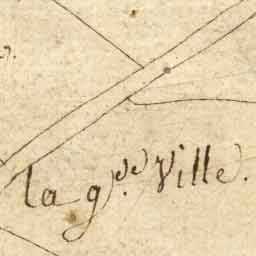 la g.de Ville.